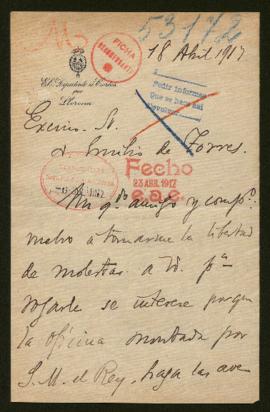 53172
FICHA
18 Abril 1917
El Diputado á Cortes
por
Llerena
Pedir informes
Que se hace así
Excmo. Sr.
D. Emilio de Torres.
Fecho
23 ABR. 1917
e.a.e.
Mi qdo amigo y compo:
me atrevo a tomarme la libertad
de molestar a V. pa
rogarle se interese porque
la oficina montada por
S. M. el Rey, haga las ave